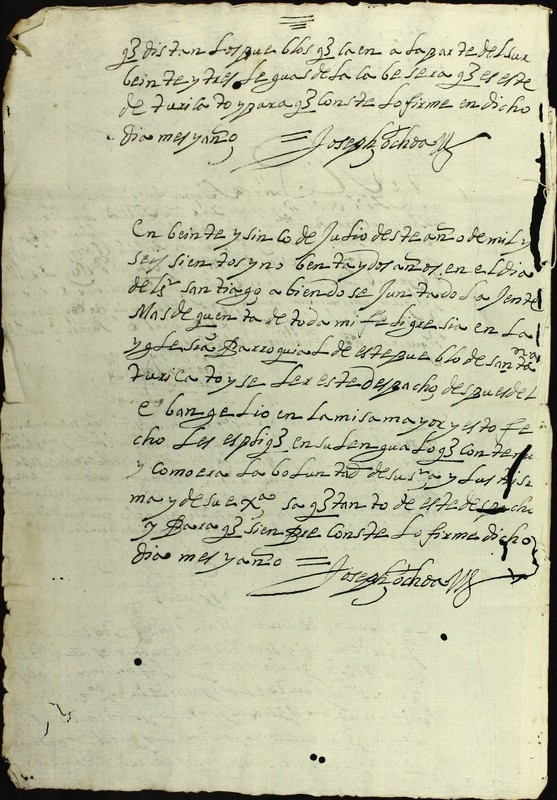 qᵉ distan los pue blos qᵉ caen a la parte del sur
beinte y tres le guas de la ca be sera qᵉ es este
de turica to y para qᵉ conste lo firme en dicho
dia mes y año = Joseph ochoa
En beinte y sin co de Julio deste año de mil y
seys sientos y no benta y dos años en el dia
del Sʳ santiago a biendo se Jun tado la Jente
Mas de quen ta de toda mi feligre sia en la
ygle sia Parroquial de este pue blo de santa
turica to y se leer este despacho despues del
e ban ge lio en la misa mayor y esto fe
cho les esplique en su len gua lo qᵉ contenia
y como era la bo luntad de su
ma y de su exᵃ sa qᵉ tan to de este despacho
y Para qᵉ siempre conste lo firme dicho
dia mes y año = Joseph ochoa